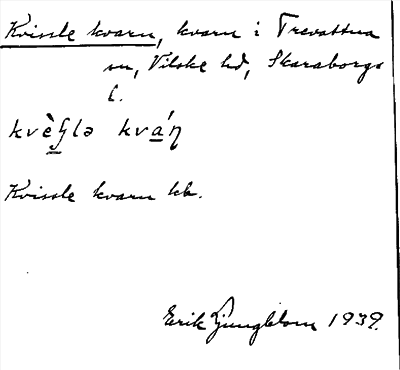 Kvissle kvarn, kvarn i Trevattna
sn, Vilske hd, Skaraborgs
l.
kvèʂlə kváɳ
Kvissle kvarn hb.
Erik Ljungblom 1939.